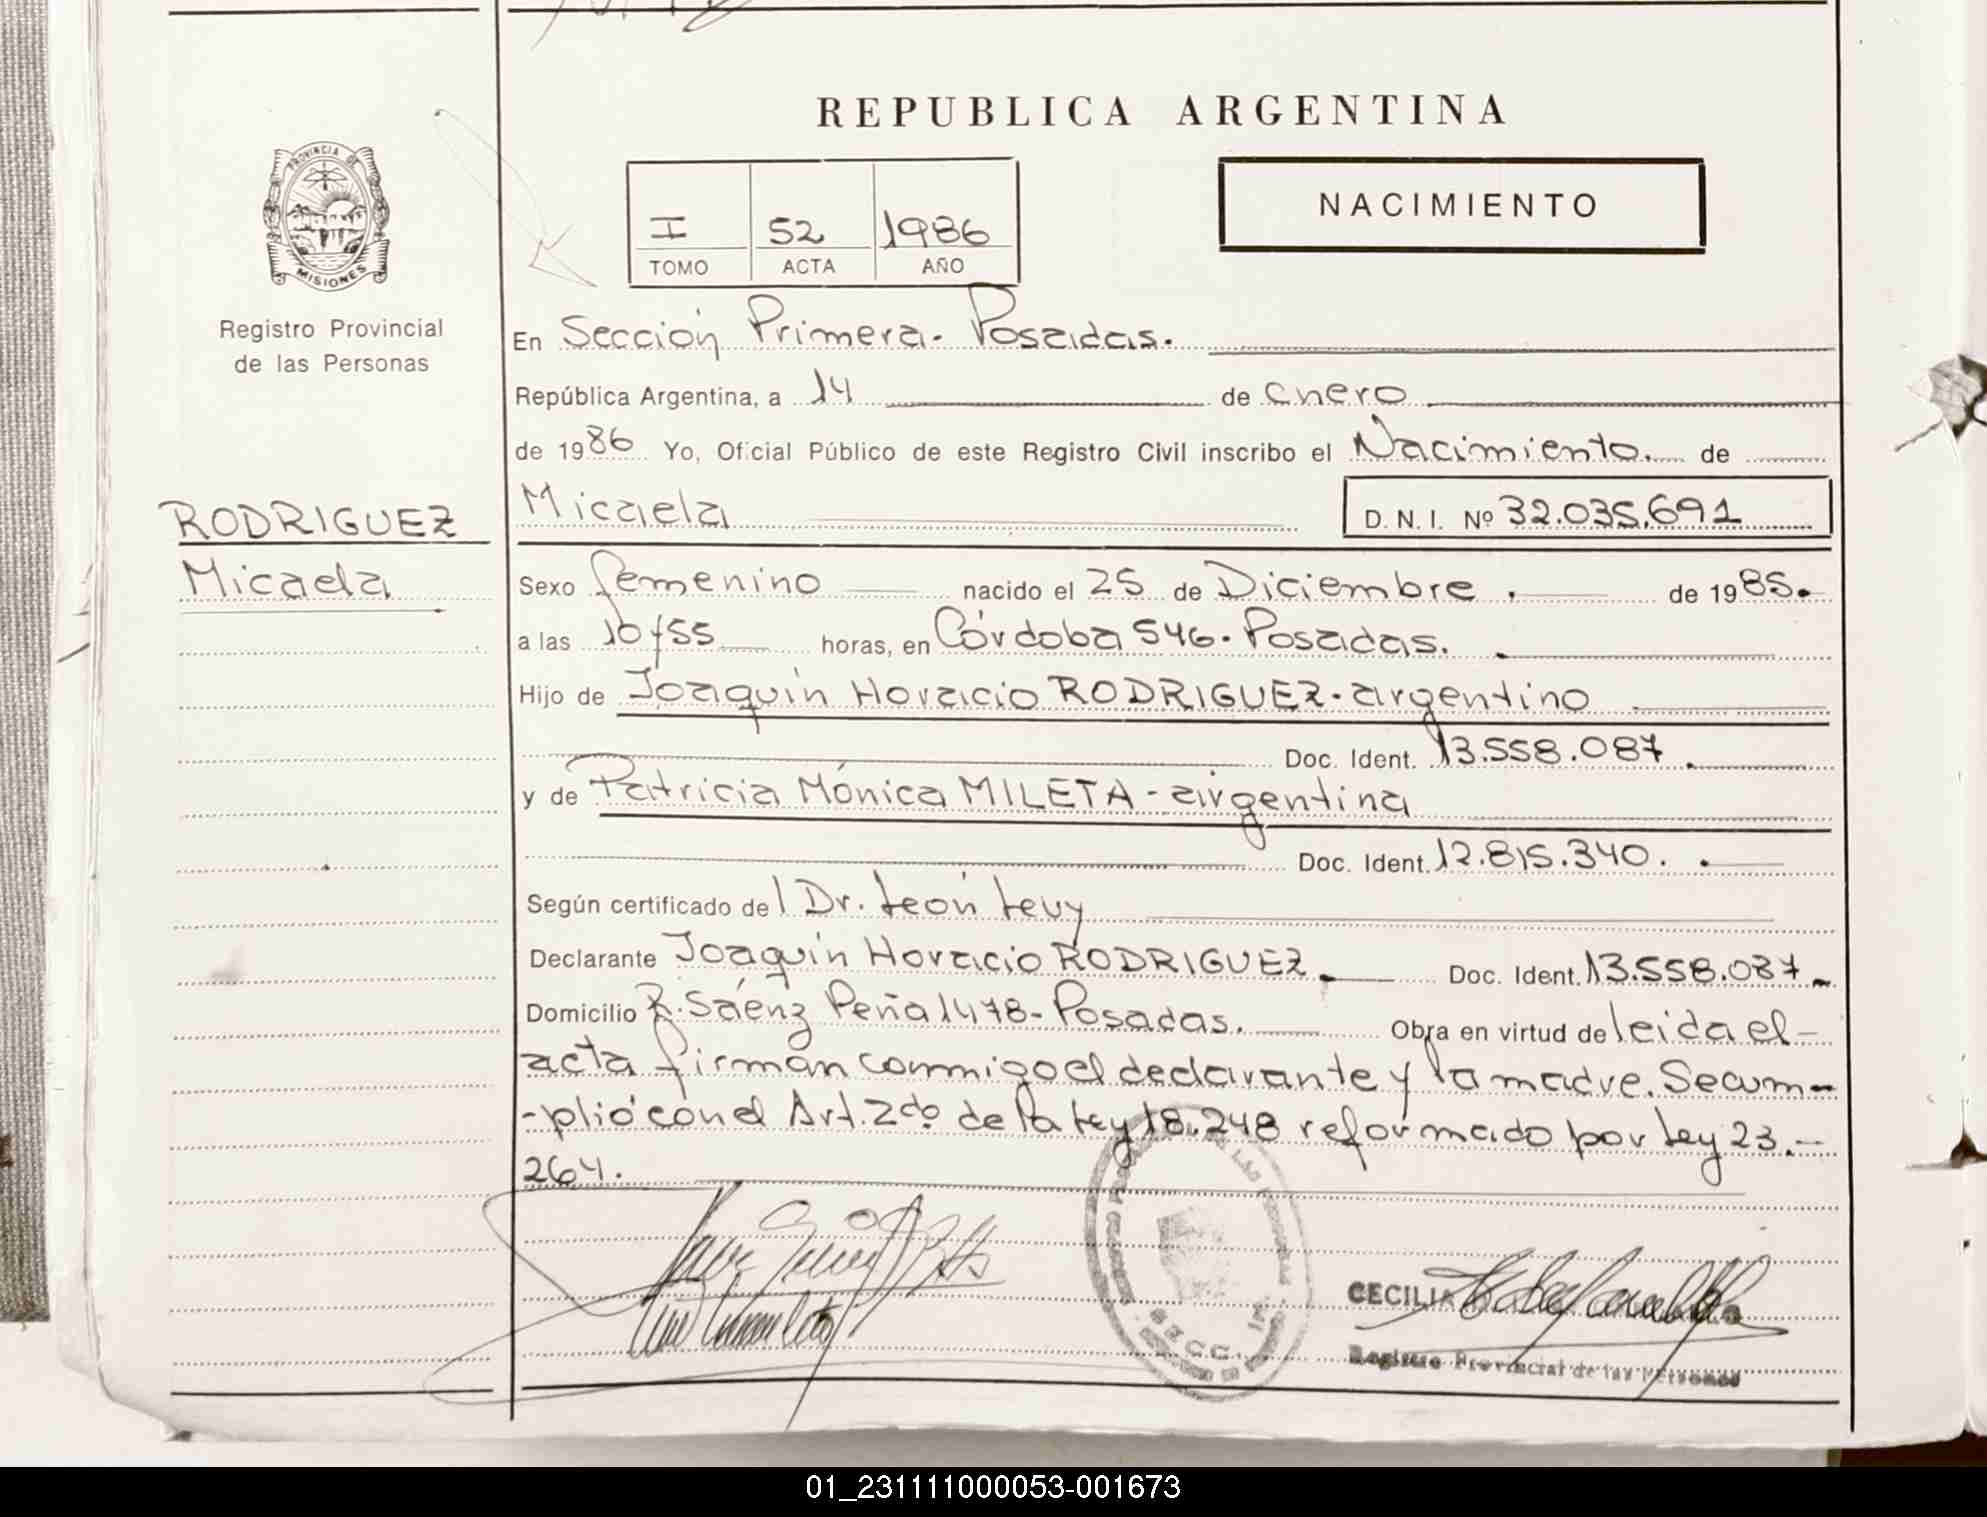 REPUBLICA ARGENTINA
PROVINCIA DE
MISIONES
Registro Provincial
de las Personas
I 52 1986
TOMO ACTA AÑO
NACIMIENTO
En Sección Primera. Posadas.
República Argentina, a 14 de enero
de 1986 Yo, Oficial Público de este Registro Civil inscribo el Nacimiento. de
RODRIGUEZ
Micaela
Micaela D.N.I. Nº 32.035.691
Sexo femenino nacido el 25 de Diciembre. de 1985.
a las 10/55 horas, en Córdoba 546. Posadas.
Hijo de Joaquín Horacio RODRIGUEZ-argentino
Doc. Ident. 13.558.087.
y de Patricia Mónica MILETA-argentina
Doc. Ident. 12.815.340.
Según certificado del Dr. León Levy
Declarante Joaquín Horacio RODRIGUEZ. Doc. Ident. 13.558.087.
Domicilio R. Sáenz Peña 1478-Posadas. Obra en virtud de leida el-
acta firman conmigo el declarante y la madre. Se cum-
-plió con el Art. 2do. de la Ley 18.248 reformado por Ley 23.-
264.
SECC. 1ª
CECILIA
Registro Provincial de las Personas
01_231111000053-001673